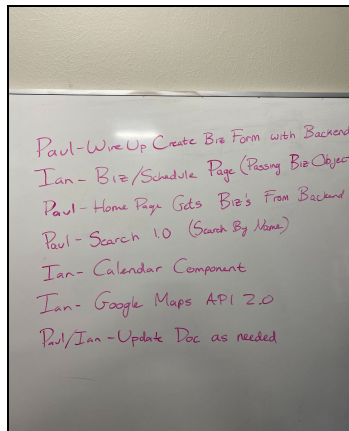 Paul-Wire Up Create Biz Form with Backend
Ian- Biz/Schedule Page (Passing Biz Object
Paul- Home Page Gets Biz's From Backend
Paul- Search 1.0 (Search By Name)
Ian- Calendar Component
Ian- Google Maps API 2.0
Paul/Ian-Update Doc as needed